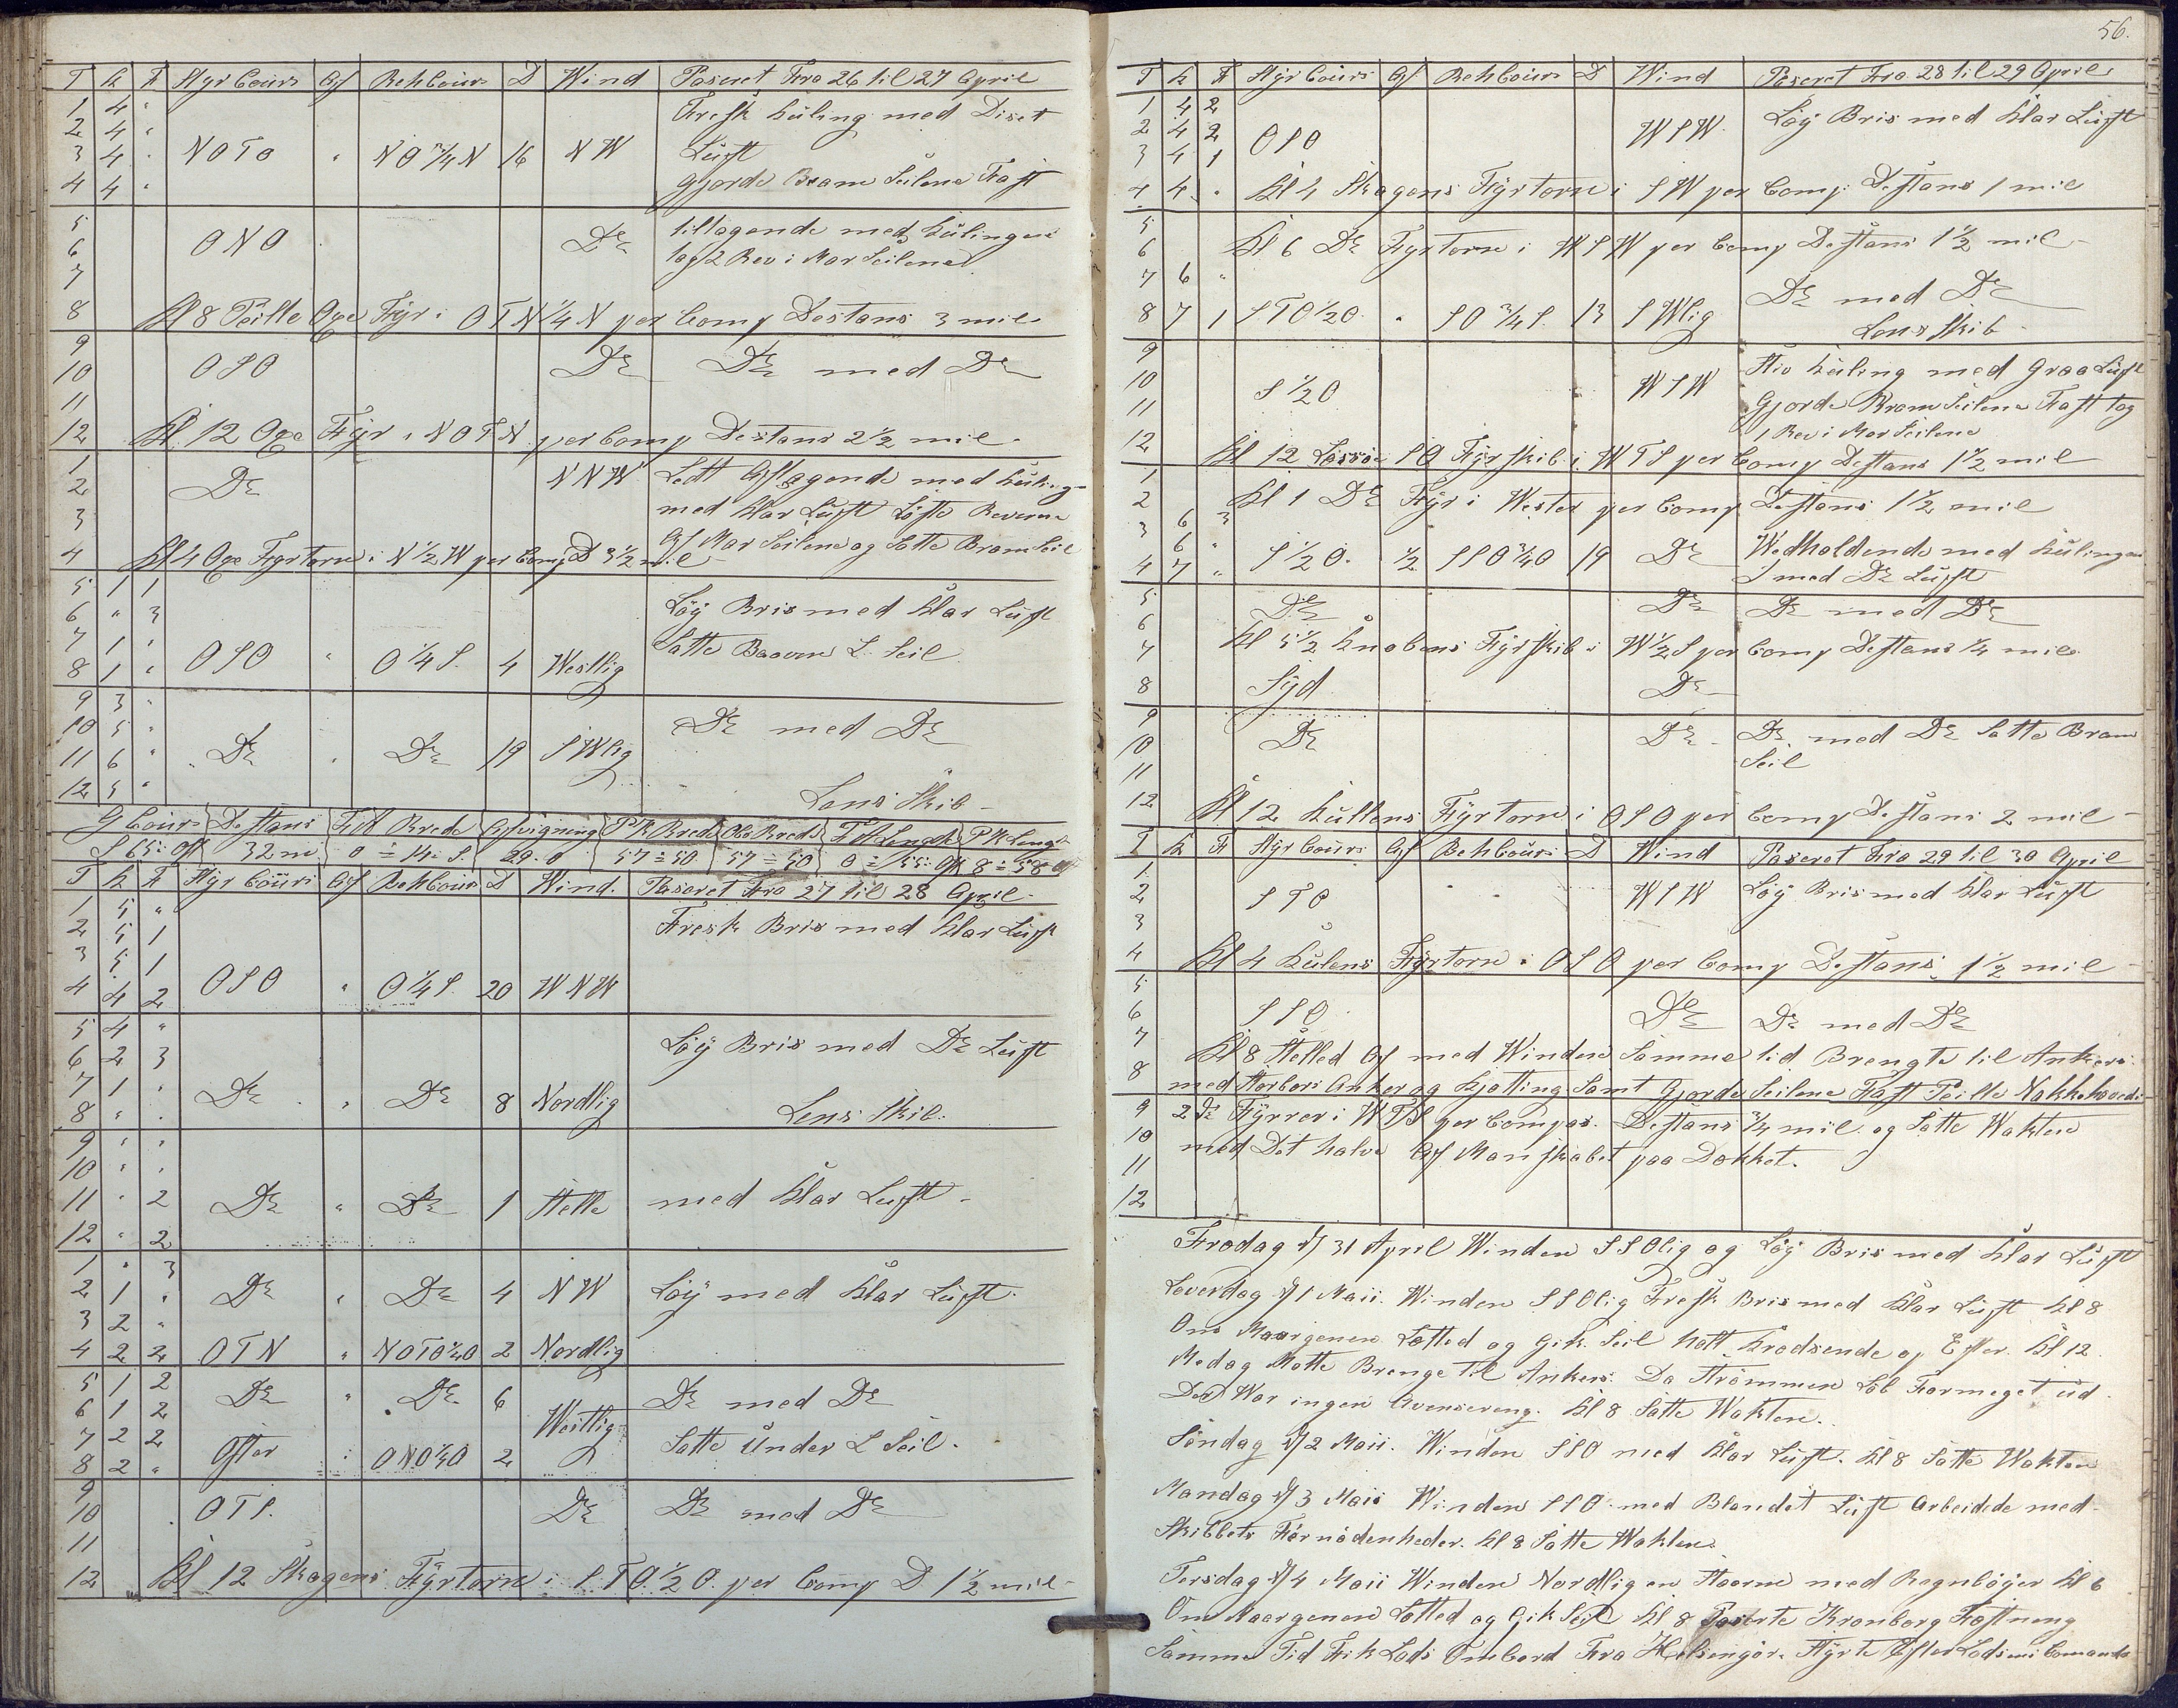 T K F Styr Cours Af Beh Cours D Wind Paseret Fra 26 til 27 April
1 4 "
Fresk Kuling med Diset
2 4 "
3 4 " NOTO " NO 3/4 N 16 NW Luft
4 4 " Gjorde Bram Seilene Fast
5
6 ONO Do tiltagende med Kulingen
7 tog 2 Rev i Mars Seilene
8 Kl 8 Peilte Oxe Fyr i OTN 1/4 N per Comp Destans 3 mil
9
10 OSO Do Do med Do
11
12 Kl 12 Oxe Fyr i NOTN per Comp Destans 2 1/2 mil
1 NNW Lidt Aftagende med Kuling
2 Do
med Klar Luft Løste Reverne
3
Af Mars Seilene og Satte Bramseil
4 Kl 4 Oxe Fyrtorn i N 1/2 W per Comp D 3 1/2 mil
5 1 1
6 " 3 Løy Bris med Klar Luft
7 1 " OSO " O 1/4 S. 4 Westlig Satte L. Seil
8 1 "
9 3 "
10 5 " Do med Do
11 6 " Do " Do 19 SWlig
12 5 " Lens Skib
G Cours Destans F A Brede Afvigning P K Brede Obs Brede F A Lengde P K Lengde
S 65: Ost 32 m 0 ÷ 14: S. 29. O 57 ÷ 50 57 ÷ 50 0 ÷ 55: Ost 8 ÷ 58
T K F Styr Cours Af Beh Cours D Wind. Paseret Fra 27 til 28 April
1 5 "
2 5 1 Fresk Bris med Klar Luft
3 5 1
4 4 2 OSO " O 1/4 S. 20 WNW
5 4 "
6 2 3 Løy Bris med Do Luft
7 1 " Do " Do 8 Nordlig
8 " " Lens Skib.
9 " "
10 " "
11 " 2 Do " Do 1 Stille med Klar Luft
12 " 2
1 " 3
2 1 " Do " Do 4 NW Løy med Klar Luft
3 2 "
4 2 2 OTN " NOTO 1/4 O 2 Nordlig
5 1 2 Do " Do 6 Do med Do
6 1 2 Westlig
7 2 2 Satte Under L Seil.
8 2 " Oster " ONO 1/4 O 2
9
10 OTS. Do Do med Do
11
12 Kl 12 Skagens Fyrtorn i STO 1/2 O. per Comp D 1 1/2 mil
56.
T K F Styr Cours Af Beh Cours D Wind Paseret Fra 28 til 29 April
1 4 2 Løy Bris med Klar Luft
2 4 2 WSW.
3 4 1 OSO
4 4 " Kl 4 Skagens Fyrtorn i SW per Comp. Destans 1 mil
5
6 Kl 6 Do Fyrtorn i WSW per Comp Destans 1 1/2 mil
7 6 " Do med Do
8 7 1 STO 1/2 O. " SO 3/4 S. 13 SWlig Lens Skib
9 Stiv Kuling med Graa Luft
10 S 1/2 O WSW
11 Gjorde Bram Seilene Fast tog
1 Rev i Mars Seilene
12 Kl 12 Lessøe SO Fyrskib i WTS per Comp Destans 1 1/2 mil
1
2 Kl 1 Do Fyr i Wester per Comp Destans 1 1/2 mil
3 6 3
6 " Wedholdende med Kulingen
4 7 " S 1/2 O. 1/2 SSO 3/4 O 19 Do med Do Luft
5
6 Do Do Do med Do
7 Kl 5 1/2 Knobens Fyrskib i W 1/2 S per Comp Destans 1/4 mil
8 Syd Do
9
10 Do Do Do med Do Satte Bram
11 Seil
12 Kl 12 Kullens Fyrtorn i OSO per Comp Destans 2 mil
T K F Styr Cours Af Beh Cours D Wind Paseret Fra 29 til 30 April
1
2 STO WSW Løy Bris med Klar Luft
3
4 Kl 4 Kulens Fyrtorn i OSO per Comp Destans 1 1/2 mil
5
6 SSO Do Do med Do
7
8 Kl 8 Stilled Af med Winden Samme tid Brengte til Ankers
med Storbors Anker og Kjetting Samt Gjorde Seilene Fast Peilte Nakkehoveds
9 2 de Fyrrer i WTS per Compas. Destans 3/4 mil og Satte Wakten
10 med Det halve Af Manskabet paa Dekket.
11
12
Fredag d/ 31 April Winden SSOlig og Løy Bris med Klar Luft
Løverdag d/ 1 Maii. Winden SSOlig Fresk Bris med Klar Luft Kl 8
Om Maargenen Letted og Gik Seil holt Krodsende op Efter. Kl 12
Medag Motte Brenge til Ankers. Da Strømmen Løb Formeget ud
Der War ingen Avensereng. Kl 8 Satte Wakten.
Søndag d/ 2 Maii. Winden SSO med Klar Luft. Kl 8 Satte Wakten
Mandag d/ 3 Maii Winden SSO med Blandet Luft Arbeidede med
Skibbets Førnødenheder. Kl 8 Satte Wakten.
Tersdag d/ 4 Maii Winden Nordlig en Storm med Regnbøyer Kl 6
Om Maargenen Letted og Gik Seil Kl 8 Paserte Kronborg Festneng
Samme Tid Fik Lods Ombord Fra Helsingør. Styrte Efter Lodsens Comando